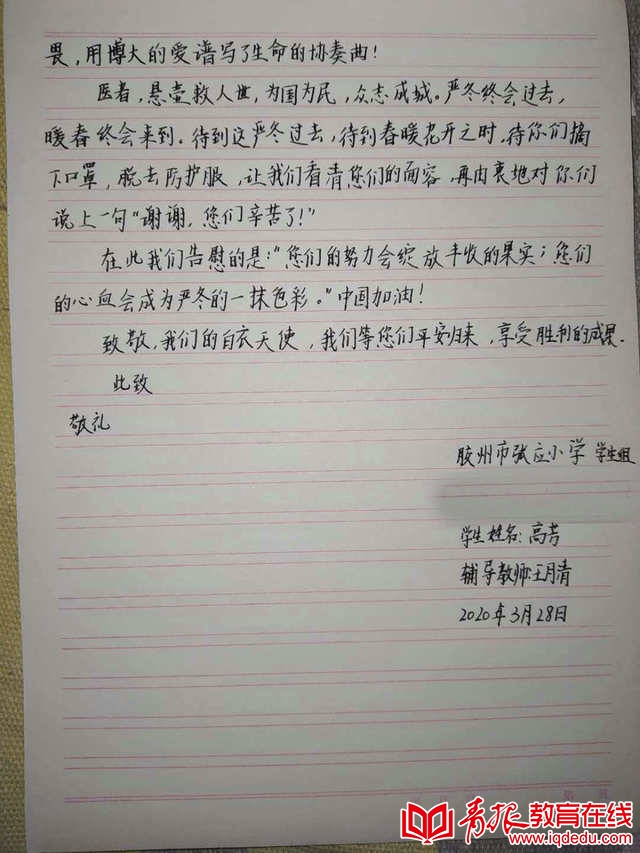 畏，用博大的爱谱写了生命的协奏曲！
医者，悬壶救人世，为国为民，众志成城。严冬终会过去，
暖春终会来到。待到这严冬过去，待到春暖花开之时，待你们摘
下口罩，脱去防护服，让我们看清您们的面容，再由衷地对你们
说上一句“谢谢，您们辛苦了！”
在此我们告慰的是：“您们的努力会绽放丰收的果实；您们
的心血会成为严冬的一抹色彩。”中国加油！
致敬，我们的白衣天使，我们等您们平安归来，享受胜利的成果.
此致
敬礼
胶州市张应小学 学生组
学生姓名：高芳
辅导教师：王月清
2020年3月28日
青报教育在线
www.iqdedu.com